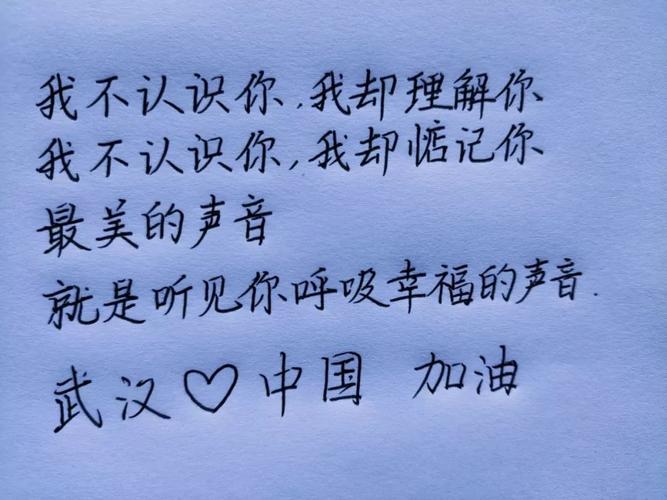 我不认识你,我却理解你
我不认识你,我却惦记你
最美的声音
就是听见你呼吸幸福的声音.
武汉♡中国 加油